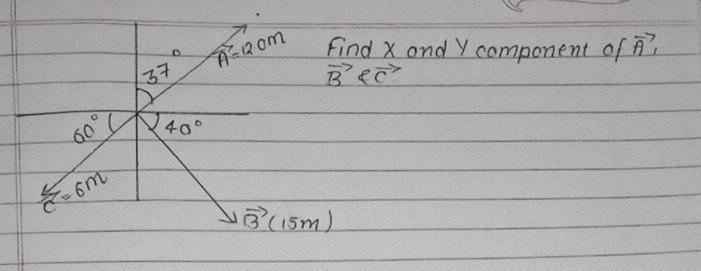 37°
A⃗=120m
Find X and Y component of A⃗,
B⃗ & C⃗.
60°
40°
C⃗=6m
B⃗ (15m)